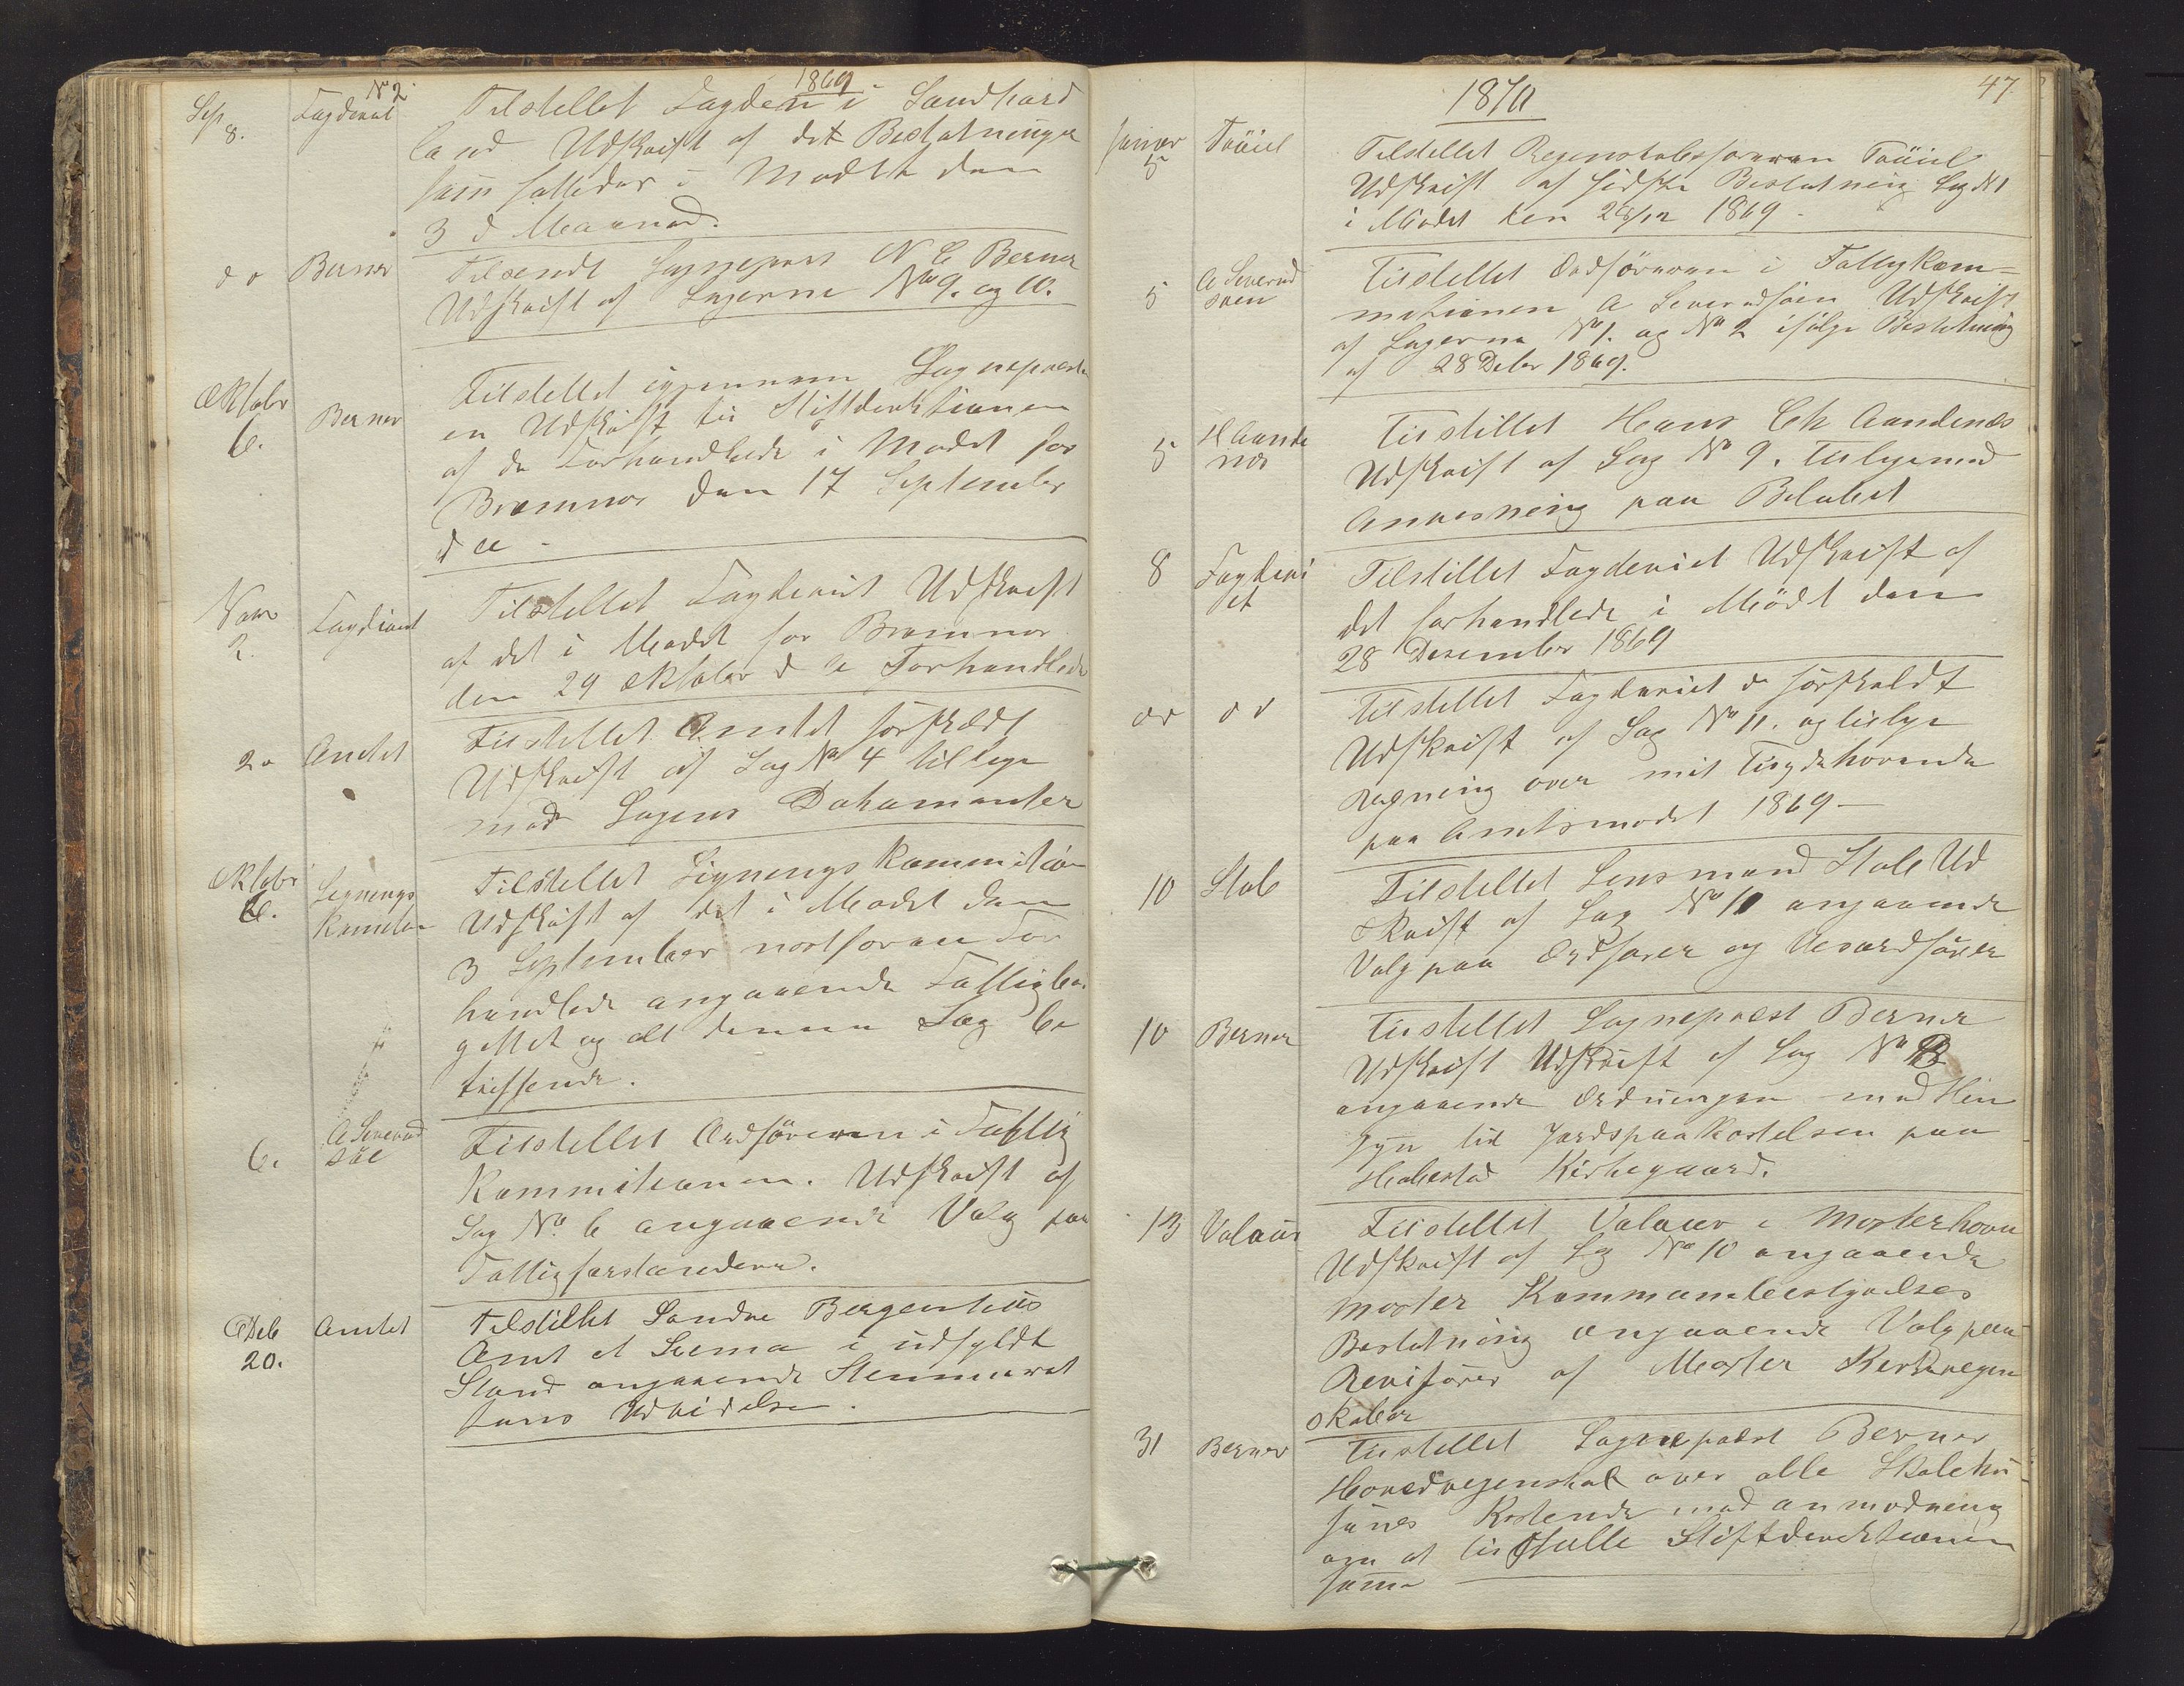 1869
Sep 8. Fogderiet No 2. Tilstellet Fogden i Sundhord
land Udskrift af det Beslutninger
som fattedes i Mødet den
3 d Maaned.
do Berner Tilsendt Sognepræst N E Berner
Udskrift af Sagerne No 9. og 10.
Oktobr 6. Berner Tilstellet igjennem Sognepræsten
en Udskrift til Stiftdirektionen
af de Forhandlede i Mødet for
Bremnes den 17 September
d A -
Novr 2. Fogderiet Tilstellet Fogderiet Udskrift
af det i Mødet for Bremnes
den 29 Oktober d A Forhandlede
2 Amtet Tilstellet Amtet
Udskrift af Sag No 4 tillige
med Sagens Dokumenter
Oktobr 6. Ligningskommission Tilstellet Ligningskommission
Udskrift af det i Mødet den
3 September næstforan For
handlede angaaende Fattigbu
gettet og alt denne Sag be
treffende.
6. A Severud
søe Tilstellet Ordføreren i Fattig
Kommitionen. Udskrift af
Sag No 6 angaaende Valg paa
Fattigforstandere.
Deb 20. Amtet Tilstillet Søndre Bergenhus
Amt et Skema i udfyldt
Stand angaaende Stemmeret
tens Udvidelse.
47
1870
Januar 5 Trüiel Tilstellet Regnskabsføreren Trüiel
Udskrift af sidste Beslutning Sag N 1
i Mødet den 28/12 1869 -
5 A Severud
søen Tilstellet Ordføreren i Fattigkom=
mitionen A Severudsøen Udskrift
af Sagerne No 1. og No 2 ifølge Beslutning
af 28 Debr 1869.
5 H Aande
næs Tilstillet Hans Ch Aandenæs
Udskrift af Sag No 9. Tilligemed
Anvisning paa Beløbet
8 Fogderi
et Tilstillet Fogderiet Udskrift af
det forhandlede i Mødet den
28 Desember 1869
do do Tilstellet Fogderiet
Udskrift af Sag No 11. og tillige
Regning over mit Tilgodehavende
paa Amtsmødet 1869 -
10 Støle Tilstellet Lensmand Støle Ud
skrift af Sag No 10 angaaende
Valg paa Ordfører og Viceordfører
10 Berner Tilstellet Sognepræst Berner
Udskrift Udskrift af Sag No
angaaende Ordningen med Hen
syn til Jordspaakastelsen paa
Kirkegaard.
13 Valaür Tilstellet Valaür i Mosterhavn
Udskrift af Sag No 10 angaaende
Moster Kommunebestyrelses
Beslutning angaaende Valg paa
Revisører af Moster Kirkeregn
skaber
31 Berner Tilstellet Sognepræst Berner
Hovedregnskab over alle Skolehu
sünes Kostende med anmodning
om at tilstille Stiftdirektionen
samme